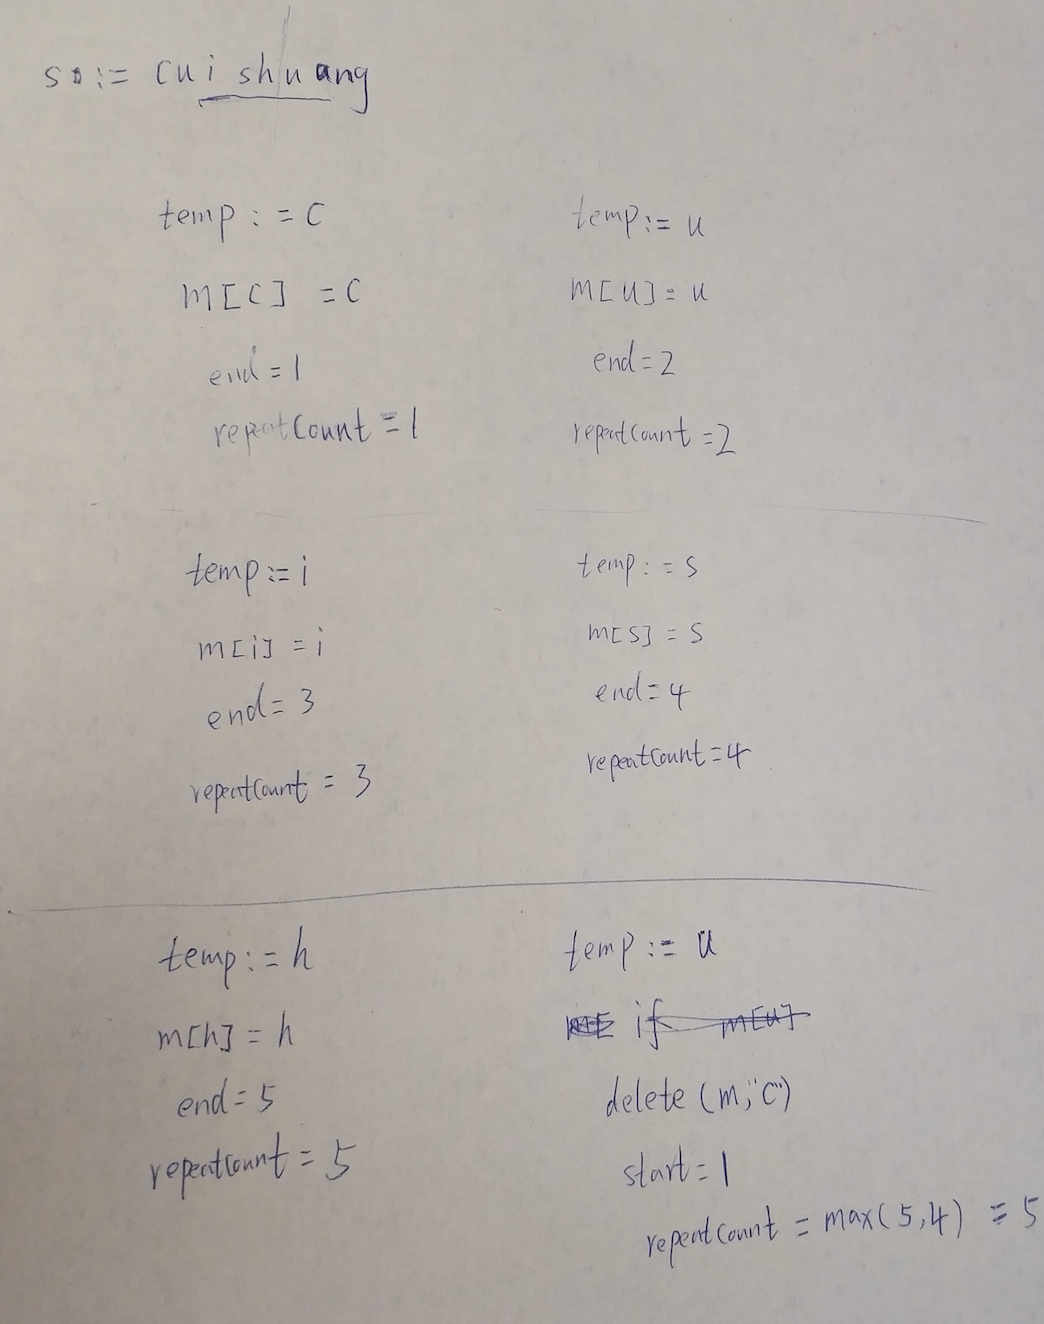 s := cuishuang
temp := c
m[c] = c
end = 1
repeatCount = 1
temp := u
m[u] = u
end = 2
repeatCount = 2
temp := i
m[i] = i
end = 3
repeatCount = 3
temp := s
m[s] = s
end = 4
repeatCount = 4
temp := h
m[h] = h
end = 5
repeatCount = 5
temp := u
if m[u]
delete (m, "c")
start = 1
repeatCount = max(5,4) = 5